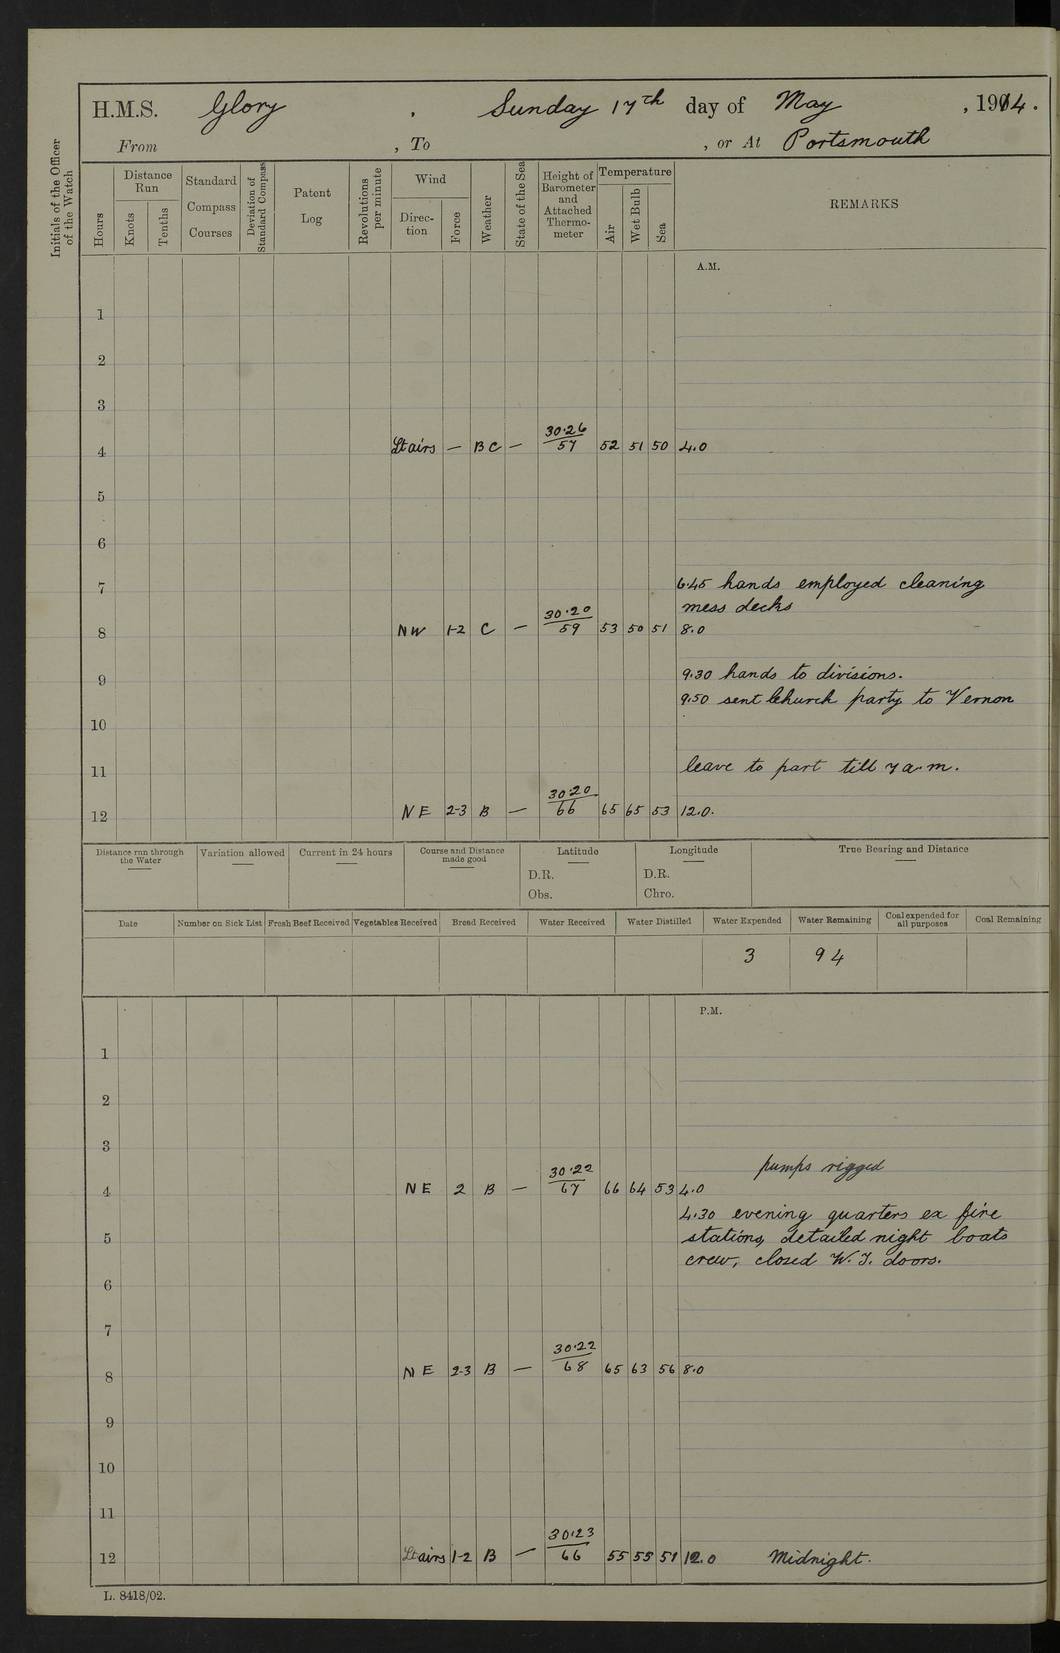 H.M.S. Glory , Sunday 17th day of May , 1914.
From , To , or At Portsmouth
Initials of the Officer of the Watch
Hours
Distance Run
Knots
Tenths
Standard Compass Courses
Deviation of Standard Compass
Patent Log
Revolutions per minute
Wind
Direc-tion
Force
Weather
State of the Sea
Height of Barometer and Attached Thermo-meter
Temperature
Air
Wet Bulb
Sea
REMARKS
A.M.
1
2
3
4 Lt airs — BC — 30.26/57 52 51 50 4.0
5
6
7 6.45 hands employed cleaning
mess decks
8 NW 1-2 C — 30.20/59 53 50 51 8.0
9 9.30 hands to divisions.
9.50 sent church party to Vernon
10
11 leave to part till 7 a.m.
12 NE 2-3 B — 30.20/66 65 65 53 12.0.
Distance run through the Water
Variation allowed
Current in 24 hours
Course and Distance made good
Latitude
D.R.
Obs.
Longitude
D.R.
Chro.
True Bearing and Distance
Date Number on Sick List Fresh Beef Received Vegetables Received Bread Received Water Received Water Distilled Water Expended Water Remaining Coal expended for all purposes Coal Remaining
3 94
P.M.
1
2
3
pumps rigged
4 NE 2 B — 30.22/67 66 64 53 4.0
4.30 evening quarters ex fire
5 stations, detailed night boats
crew, closed W.T. doors.
6
7
8 NE 2-3 B — 30.22/68 65 63 56 8.0
9
10
11
12 Lt airs 1-2 B — 30.23/66 55 55 51 12.0 Midnight.
L. 8418/02.